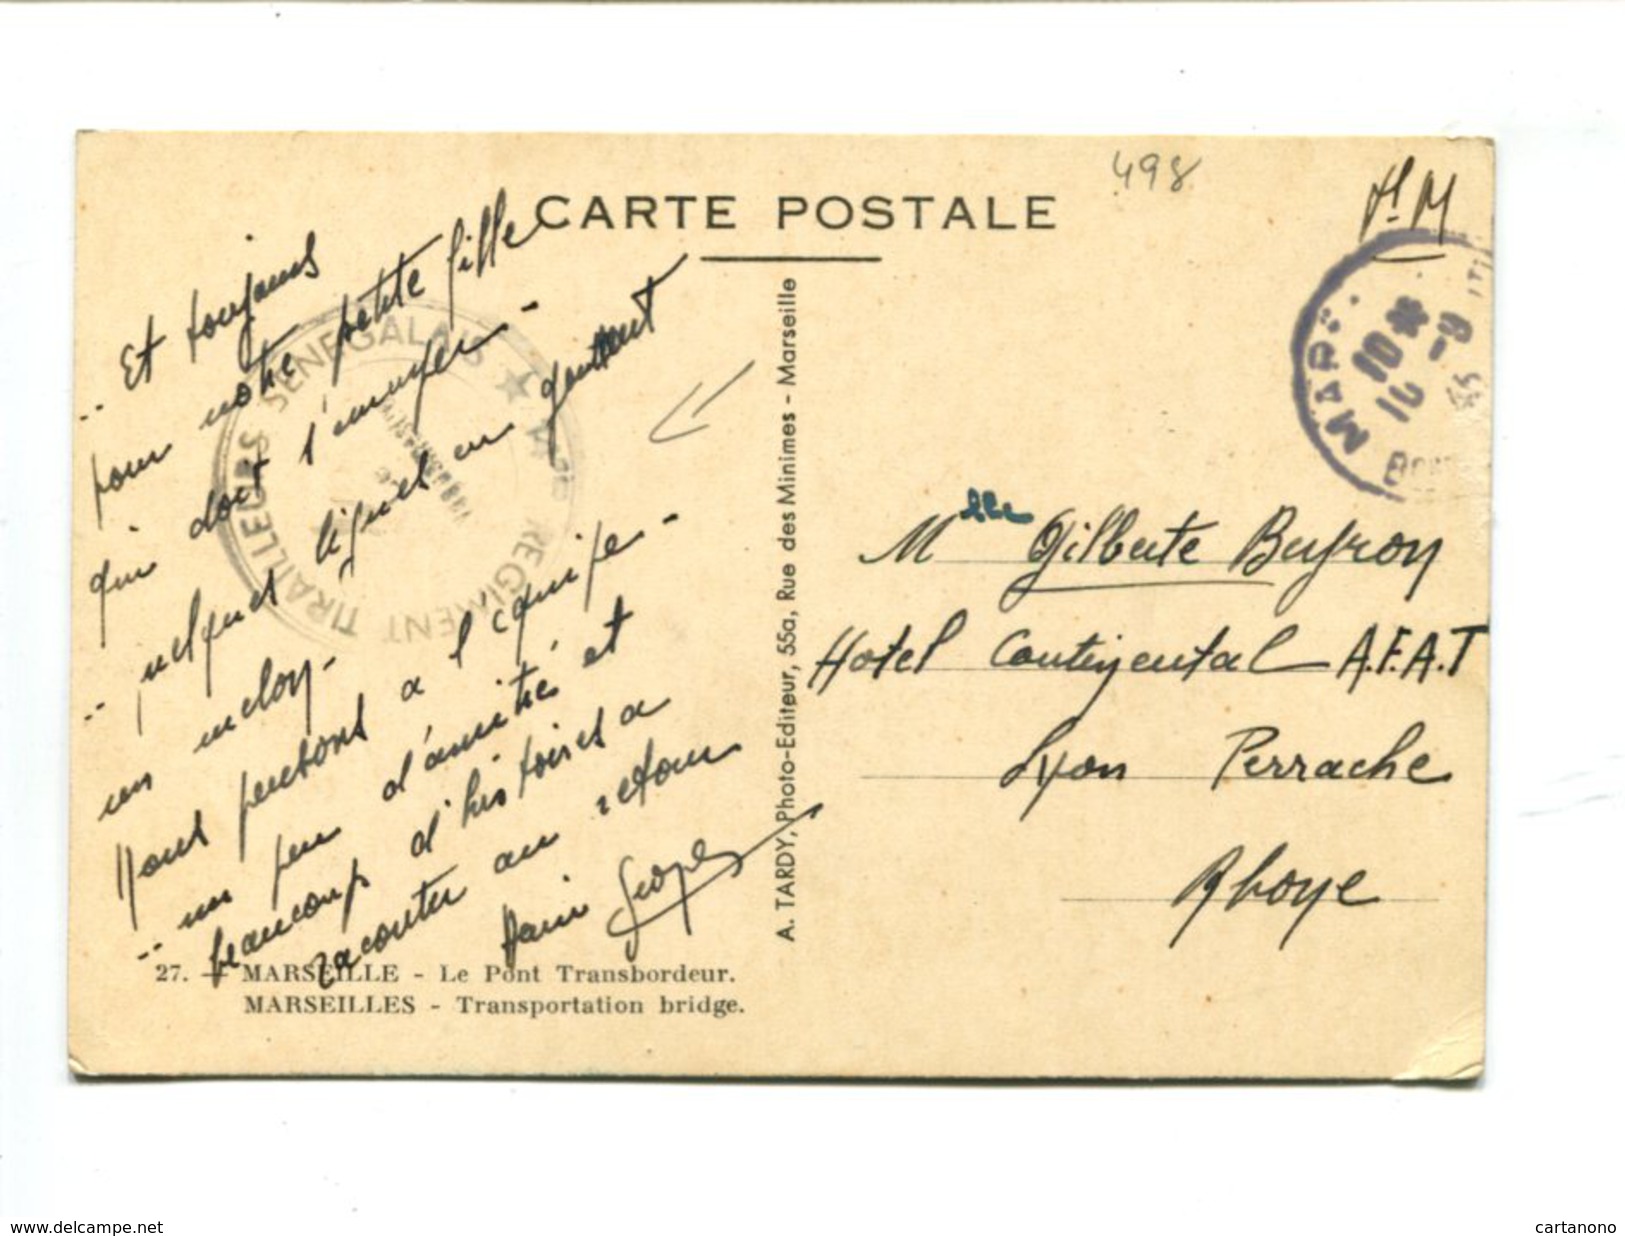 498
F.M
CARTE POSTALE
.. Et toujours
pour notre petite fille
qui doit s'ennuyer -
.. quelques lignes en goûtant
un melon -
Nous pensons à l'équipe -
.. un peu d'amitié et
beaucoup d'histoires a
raconter au retour
TIRAILLEURS SENEGALAIS
REGIMENT
A. TARDY, Photo-Editeur, 55a, Rue des Minimes - Marseille
10 *
Mlle Gilberte
Hotel Continental A.F.A.T
Lyon Perrache
Rhone
27. — MARSEILLE - Le Pont Transbordeur.
MARSEILLES - Transportation bridge.
www.delcampe.net
cartanono